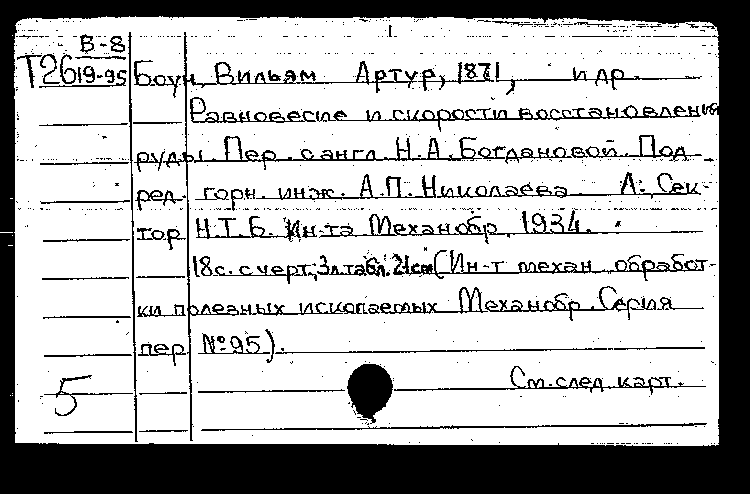 В-8
Т26 19-95 Боун, Вильям Артур, 1871, и др.
Равновесие и скорости восстановления
руды. Пер. с англ. Н.А.Богдановой. Под
ред. горн. инж. А.П.Николаева Л., Сек-
тор Н.Т.Б. Ин-та Механобр, 1934.
18с. с черт., 3л.табл. 21см (Ин-т механ. обработ-
ки полезных ископаемых Механобр. Серия
пер №95).
См.след.карт.
5